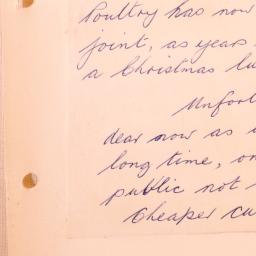 Poultry has now
joint, as years
a Christmas lu
Unfort
dear now as
long time, on
public not
Cheaper cu